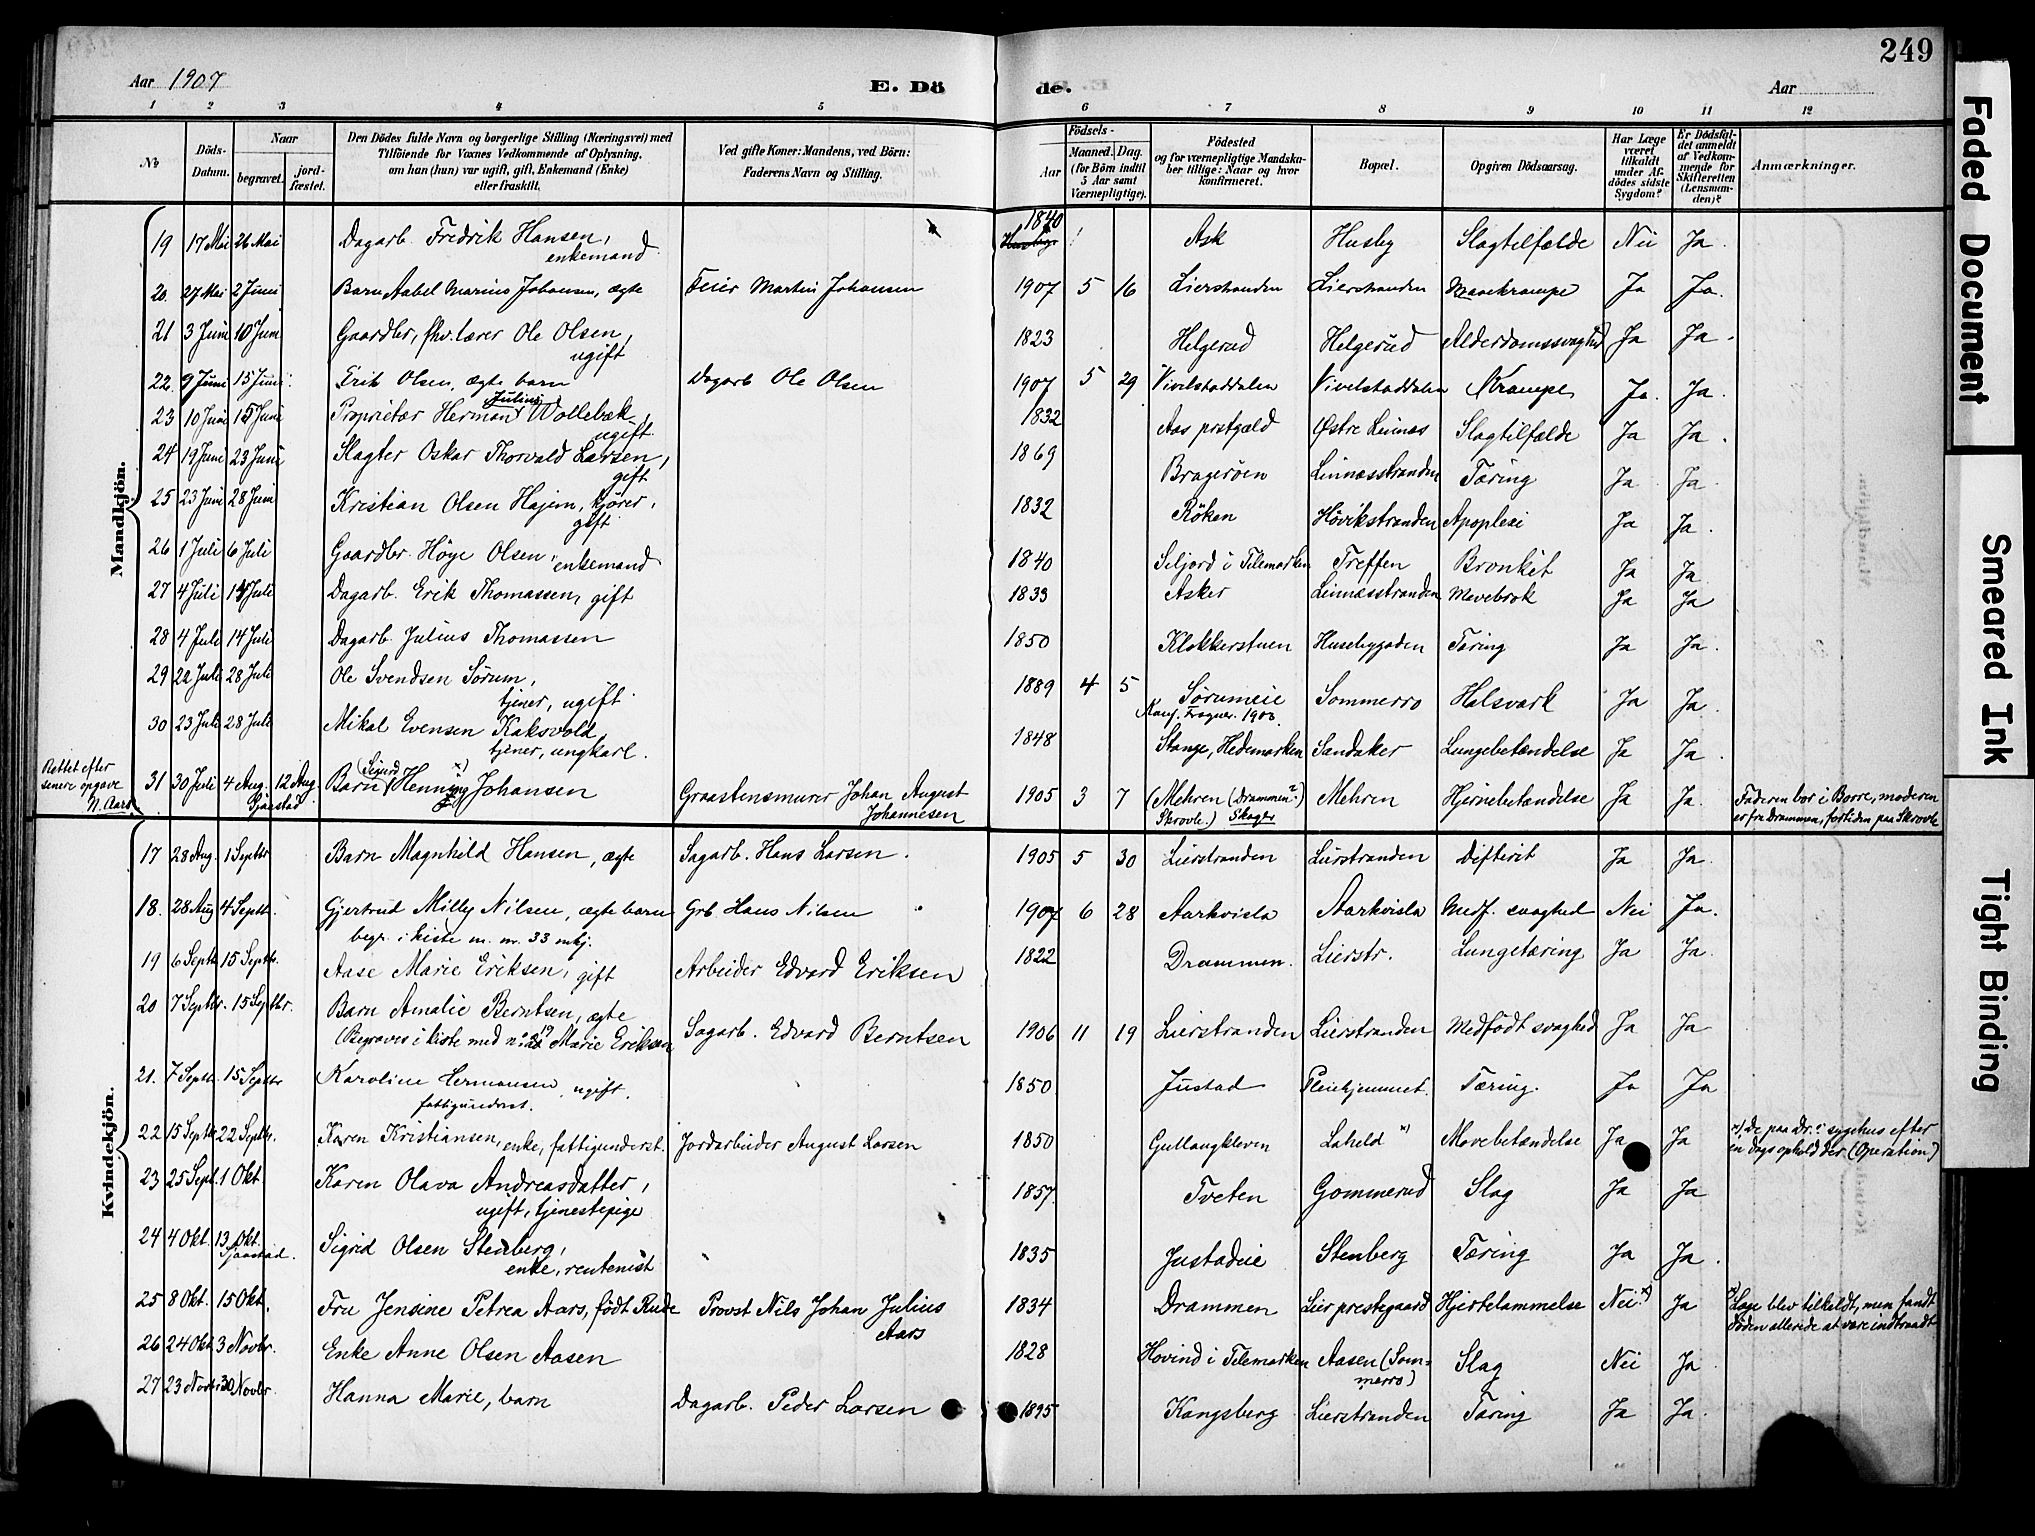 249
Aar 1907 E. Dö de. Aar
1 2 3 4 5 6 7 8 9 10 11 12
No
Döds-Datum.
Naar begravet. jordfæstet.
Den Dödes fulde Navn og borgerlige Stilling (Næringsvei) med Tilföiende for Voxnes Vedkommende af Oplysning, om han (hun) var ugift, gift, Enkemand (Enke) eller fraskilt.
Ved gifte Koner: Mandens, ved Börn: Faderens Navn og Stilling.
Födsels- Aar Maaned. Dag. (for Börn indtil 5 Aar samt Værnepligtige).
Födested og for værnepligtige Mandskaber tillige: Naar og hvor konfirmeret.
Bopæl.
Opgiven Dödsaarsag.
Har Læge været tilkaldt under Afdödes sidste Sygdom?
Er Dödsfaldet anmeldt af Vedkommende for Skifteretten (Lensmanden)?
Anmærkninger.
Mandkjön.
19 17 Mai 26 Mai Dagarb. Fredrik Hansen, enkemand 1840 Ask Husby Slagtilfælde Nei Ja.
20. 27 Mai 2 Juni Barn Aabel Marius Johansen, ægte Feier Martin Johansen 1907 5 16 Lierstranden Lierstranden Mavekrampe Ja Ja.
21 3 Juni 10 Juni Gaardbr, fhv. lærer Ole Olsen, ugift 1823 Helgerud Helgerud Alderdomssvaghed Ja Ja.
22. 9 Juni 15 Juni. Erik Olsen, ægte barn Dagarb Ole Olsen 1907 5 29 Vivelstaddalen Vivelstaddalen Krampe Ja. Ja.
23 10 Juni 15 Juni Proprietær Herman Julius Wollebæk, ugift. 1832 Aas prstgæld Østre Linnæs Slagtilfælde Ja Ja.
24 19 Juni 23 Juni Slagter Oskar Thorvald Larsen, gift 1869 Bragerøen Linnæsstranden Tæring Ja Ja.
25 23 Juni 28 Juni Kristian Olsen Hajem, kjører, gift 1832 Røken Høvikstranden Apoplexi Ja Ja.
26 1 Juli 6 Juli Gaardbr. Høye Olsen, enkemand 1840 Seljord i Telemarken Treffen Bronkit Ja Ja
27 4 Juli 14 Juli Dagarb. Erik Thomassen, gift 1833 Asker Linnæsstranden Mavebrok Ja Ja
28 4 Juli 14 Juli Dagarb. Julius Thomassen 1850 Klokkerstuen Husebygaden Tæring Ja Ja.
29 22 Juli 28 Juli Ole Svendsen Sørum, tjener, ugift. 1889 4 5 Sørumeie Konf. Fragner. 1903 Sommerro Halsvark Ja Ja.
30 23 Juli 28 Juli Mikal Evensen Kaksvold, tjener, ungkarl. 1848 Stange, Hedemarken Sandaker Lungebetændelse Ja Ja.
Rettet efter senere opgave N. Aars
31 30 Juli 4 Aug. 12 Aug. Sjaastad Barn (Sigurd x) Henning Johansen Graastensmurer Johan August Johannesen 1905 3 7 (Mehren (Drammen?) Skrovle.) Skoger Mehren Hjernebetændelse Ja Ja. Faderen bor i Borre, moderen er fra Drammen, fortiden paa Skrovle
Kvindekjön.
17 28 Aug. 1 Septbr Barn Magnhild Hansen, ægte Sagarb. Hans Larsen. 1905 5 30 Lierstranden Lierstranden Difterit Ja Ja.
18. 28 Aug 4 Septb. Gjertrud Milly Nilsen, ægte barn begr. i kiste m. nr. 33 mkj. Grb. Hans Nilsen 1907 6 28 Aarkvisla Aarkvisla Medf. svaghed Nei Ja.
19 6 Septb 15 Septb. Aase Marie Eriksen, gift Arbeider Edvard Eriksen 1822 Drammen. Lierstr. Lungetæring Ja Ja.
20 7 Septbr. 15 Septbr. Barn Amalie Berntsen, ægte (Begraves i kiste med no 19 Aase Marie Eriksen Sagarb. Edvard Berntsen 1906 11 19 Lierstranden Lierstranden Medfødt svaghed Ja Ja
21. 7 Septb. 15 Septbr Karoline Hermansen, ugift. fattigunderst. 1850 Justad Pleiehjemmet. Tæring. Ja Ja
22 15 Septbr 22 Septbr. Karen Kristiansen, enke, fattigunderst. Jordarbeider August Larsen 1850 Gullaugkleven Laheld x) Mavebetændelse Ja Ja x) De paa Dr.s sygehus efter en dags ophold der (Operation)
23 25 Sept. 1 Okt Karen Olava Andreasdatter, ugift, tjenestepige 1857. Tveten Gommerud Slag Ja Ja
24 4 Okt. 13 Okt. Sjaastad. Sigrid Olsen Stenberg, enke, rentenist 1835 Justadeie Stenberg Tæring Ja Ja.
25 8 Okt. 15 Okt. Fru Jensine Petrea Aars, født Rude Provst Nils Johan Julius Aars 1834 Drammen Lier prestegaard Hjertelammelse Nei x) Ja x) Læge blev tilkaldt, men fandt døden allerede at være indtraadt
26 24 Okt 3 Novbr. Enke Anne Olsen Aasen 1828 Hovind i Telemarken Aasen (Sommerro) Slag Nei Ja
27 23 Novbr 30 Novbr. Hanna Marie, barn Dagarb. Peder Larsen 1895 Kongsberg Lierstranden Tæring Ja Ja.
Faded Document
Smeared Ink
Tight Binding